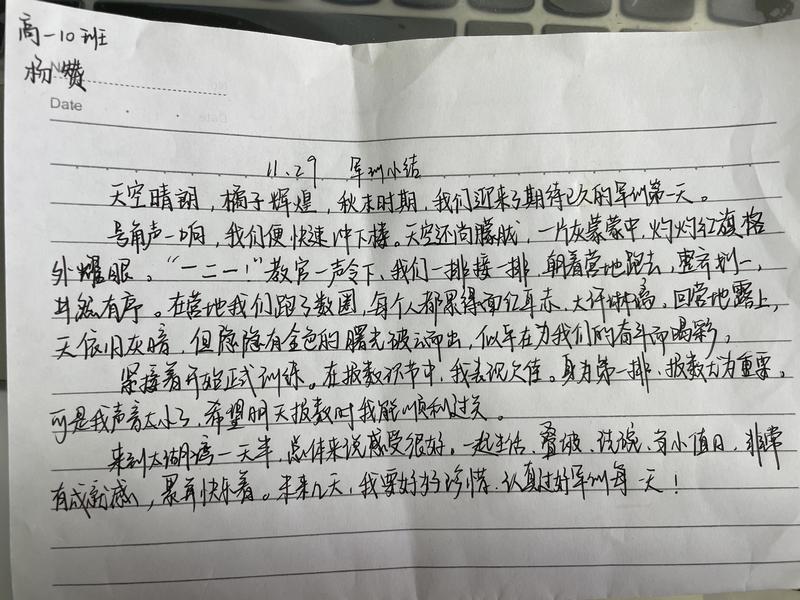 高一10班
杨赞
Date
11.29 军训小结
天空晴朗，橘子辉煌，秋末时期，我们迎来了期待已久的军训第一天。
号角声一响，我们便快速冲下楼。天空还尚朦胧，一片灰蒙蒙中，灼灼红旗格
外耀眼。“一二一！”教官一声令下，我们一排接一排，朝着营地跑去，整齐划一，
井然有序。在营地我们跑了数圈，每个人都累得面红耳赤，大汗淋漓，回营地露上，
天依旧灰暗，但隐隐有金色的曙光破云而出，似乎在为我们的奋斗而喝彩。
紧接着开始正式训练。在报数环节中，我表现欠佳。身为第一排，报数尤为重要，
可是我声音太小了，希望明天报数时我能顺利过关。
来到太湖湾一天半，总体来说感受很好。一起生活、叠被、洗碗、当小值日，非常
有成就感，累并快乐着。未来几天，我要好好珍惜，认真过好军训每一天！